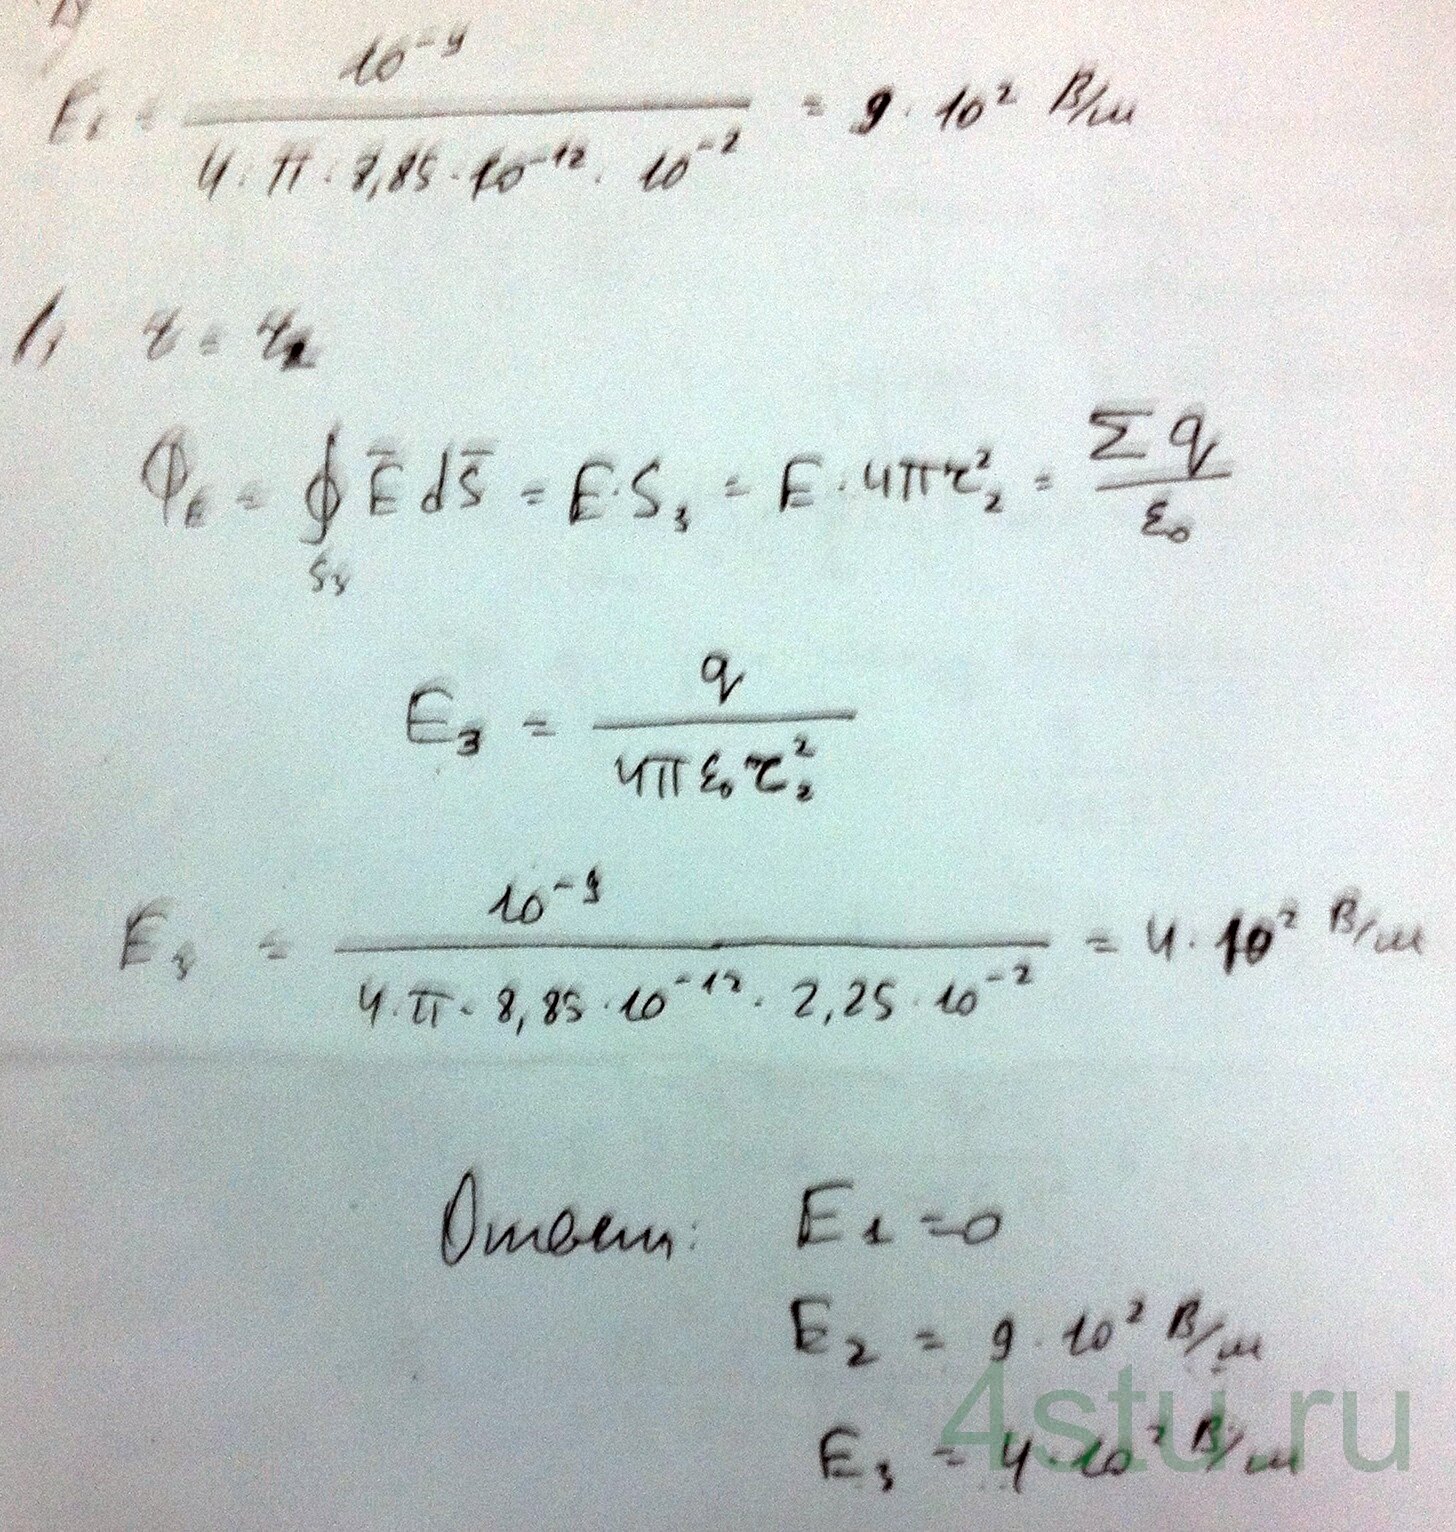 10⁻⁹
E = ───────── = 9 · 10² В/м
4 · π · 8,85 · 10⁻¹² · 10⁻²
r = r₂
Φ_E = ∮_S₃ E̅ dS̅ = E · S₃ = E · 4πr₂² = Σq / ε₀
E₃ = q / 4πε₀r₂²
E₃ = 10⁻⁹ / 4 · π · 8,85 · 10⁻¹² · 2,25 · 10⁻² = 4 · 10² В/м
Ответ: E₁ = 0
E₂ = 9 · 10² В/м
E₃ = 4 · 10² В/м
4stu.ru